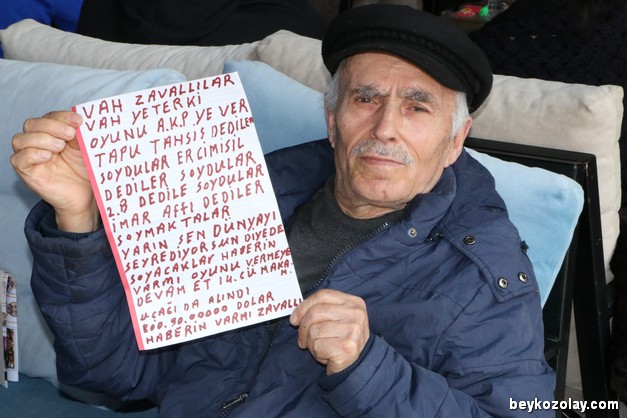 VAH ZAVALLILAR
VAH YETERKİ
OYUNU A.K.P.YE VER
TAPU TAHSİŞ DEDİLER
SOYDULAR ERÇİMİSİL
DEDİLER SOYDULAR
2.B DEDİLE SOYDULAR
İMAR AFFI DEDİLER
SOYMAKTALAR
YARIN SEN DÜNYAYI
SEYREDİYORSUN DİYEDE
SOYACAKLAY HABERİN
VARMI OYUNU VERMEYE
DEVAM ET 14.CÜ MAKA
UÇAĞI DA ALINDI
DOLAR
HABERİN VARMI ZAVALLI
beykozolay.com